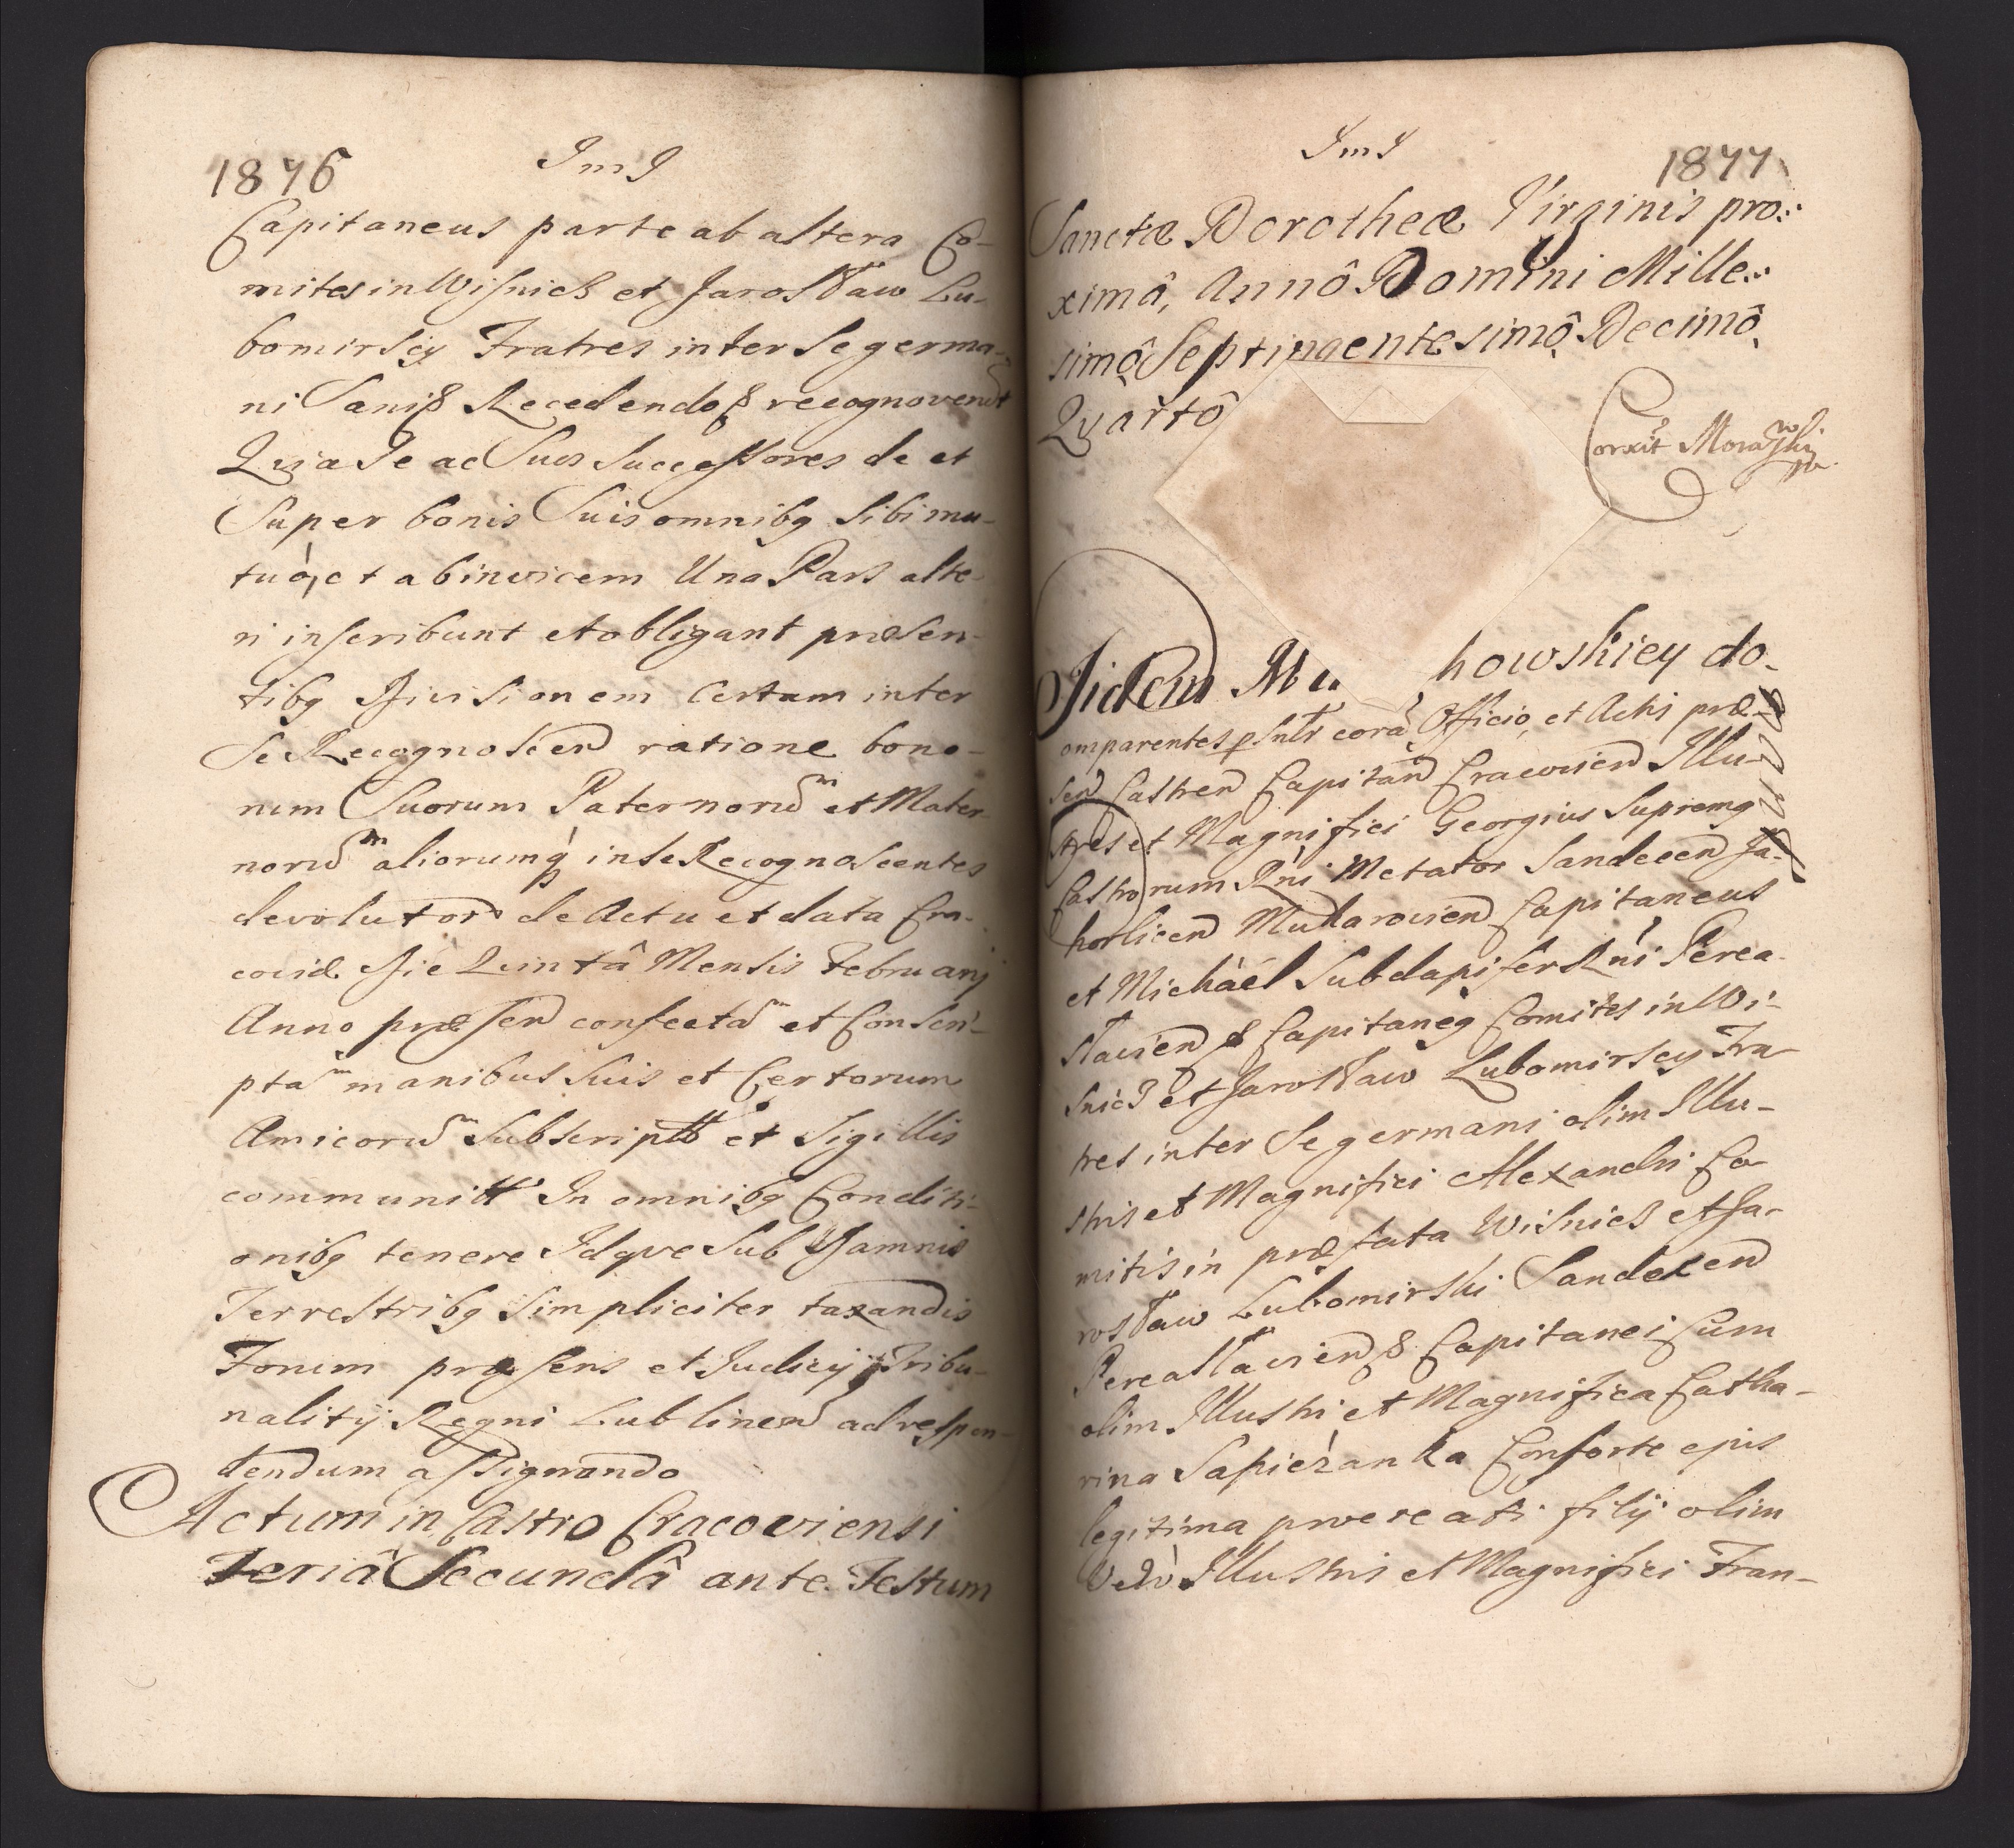 1876
ImJ
Capitaneus parte ab altera Co-
mites in Wisnicz et Jarosław Lu-
bomirscy Fratres inter se germa-
ni Sani & Recedendo & recognoverut
Quia Se ac Suos Successores de et
Super bonis Suis omnibq Sibi mu-
tuó et abinvicem Una Pars alte-
ri inscribunt et obligant præsen-
tibq Divisionem Certam inter
Se Recognoscen ratione bono-
rum Suorum Paternorum et Mater
norum aliorumq in se Recognoscentes
devolutor de Actu et data Cra-
coviæ Die Quintâ Mensis Februarij
Anno præsen confectam et Conscri-
ptam manibus Suis et Certorum
Amicorum Subscript et Sigillis
communitt In omnibq Conditi-
onibq tenere Idqve Sub Damnis
Terrestribq Simpliciter taxandis
Forum præsens et Judicij Tribu-
nalitij Regni Lublinen ad respon-
dendum assignando
Actum in Castro Cracoviensi
Feriâ Secundâ ante Festum
ImJ
1877
Sanctæ Dorotheæ Virginis pro-
ximâ, Annô Domini Mille-
simô Septingentesimô Decimô
Qvartô
Correxit Morawski
Jidem Mu howskiey do-
omparentes psnlr corā Officio, et Actis præ-
sen Castren Capitan Cracovien Illu-
stres et Magnifici Georgius Supremq
Castrorum Rni Metator Sandecen Ja-
horlicen Mukarovien Capitaneus
et Michàël Subdapifer Rni Perea-
slavien & Capitaneq Comites in Wi-
snicz et Jarosław Lubomirscy Fra-
tres inter Se germani olim Illu-
stris et Magnifici Alexandri Co-
mitis in præfata Wisnicz et Ja-
rosław Lubomirski Sandecen
Pereaslavien & Capitanei cum
olim Illustri et Magnifica Catha-
rina Sapieżanka Consorte ejus
legitima procreati filij olim
verò Illustris et Magnifici Fran-